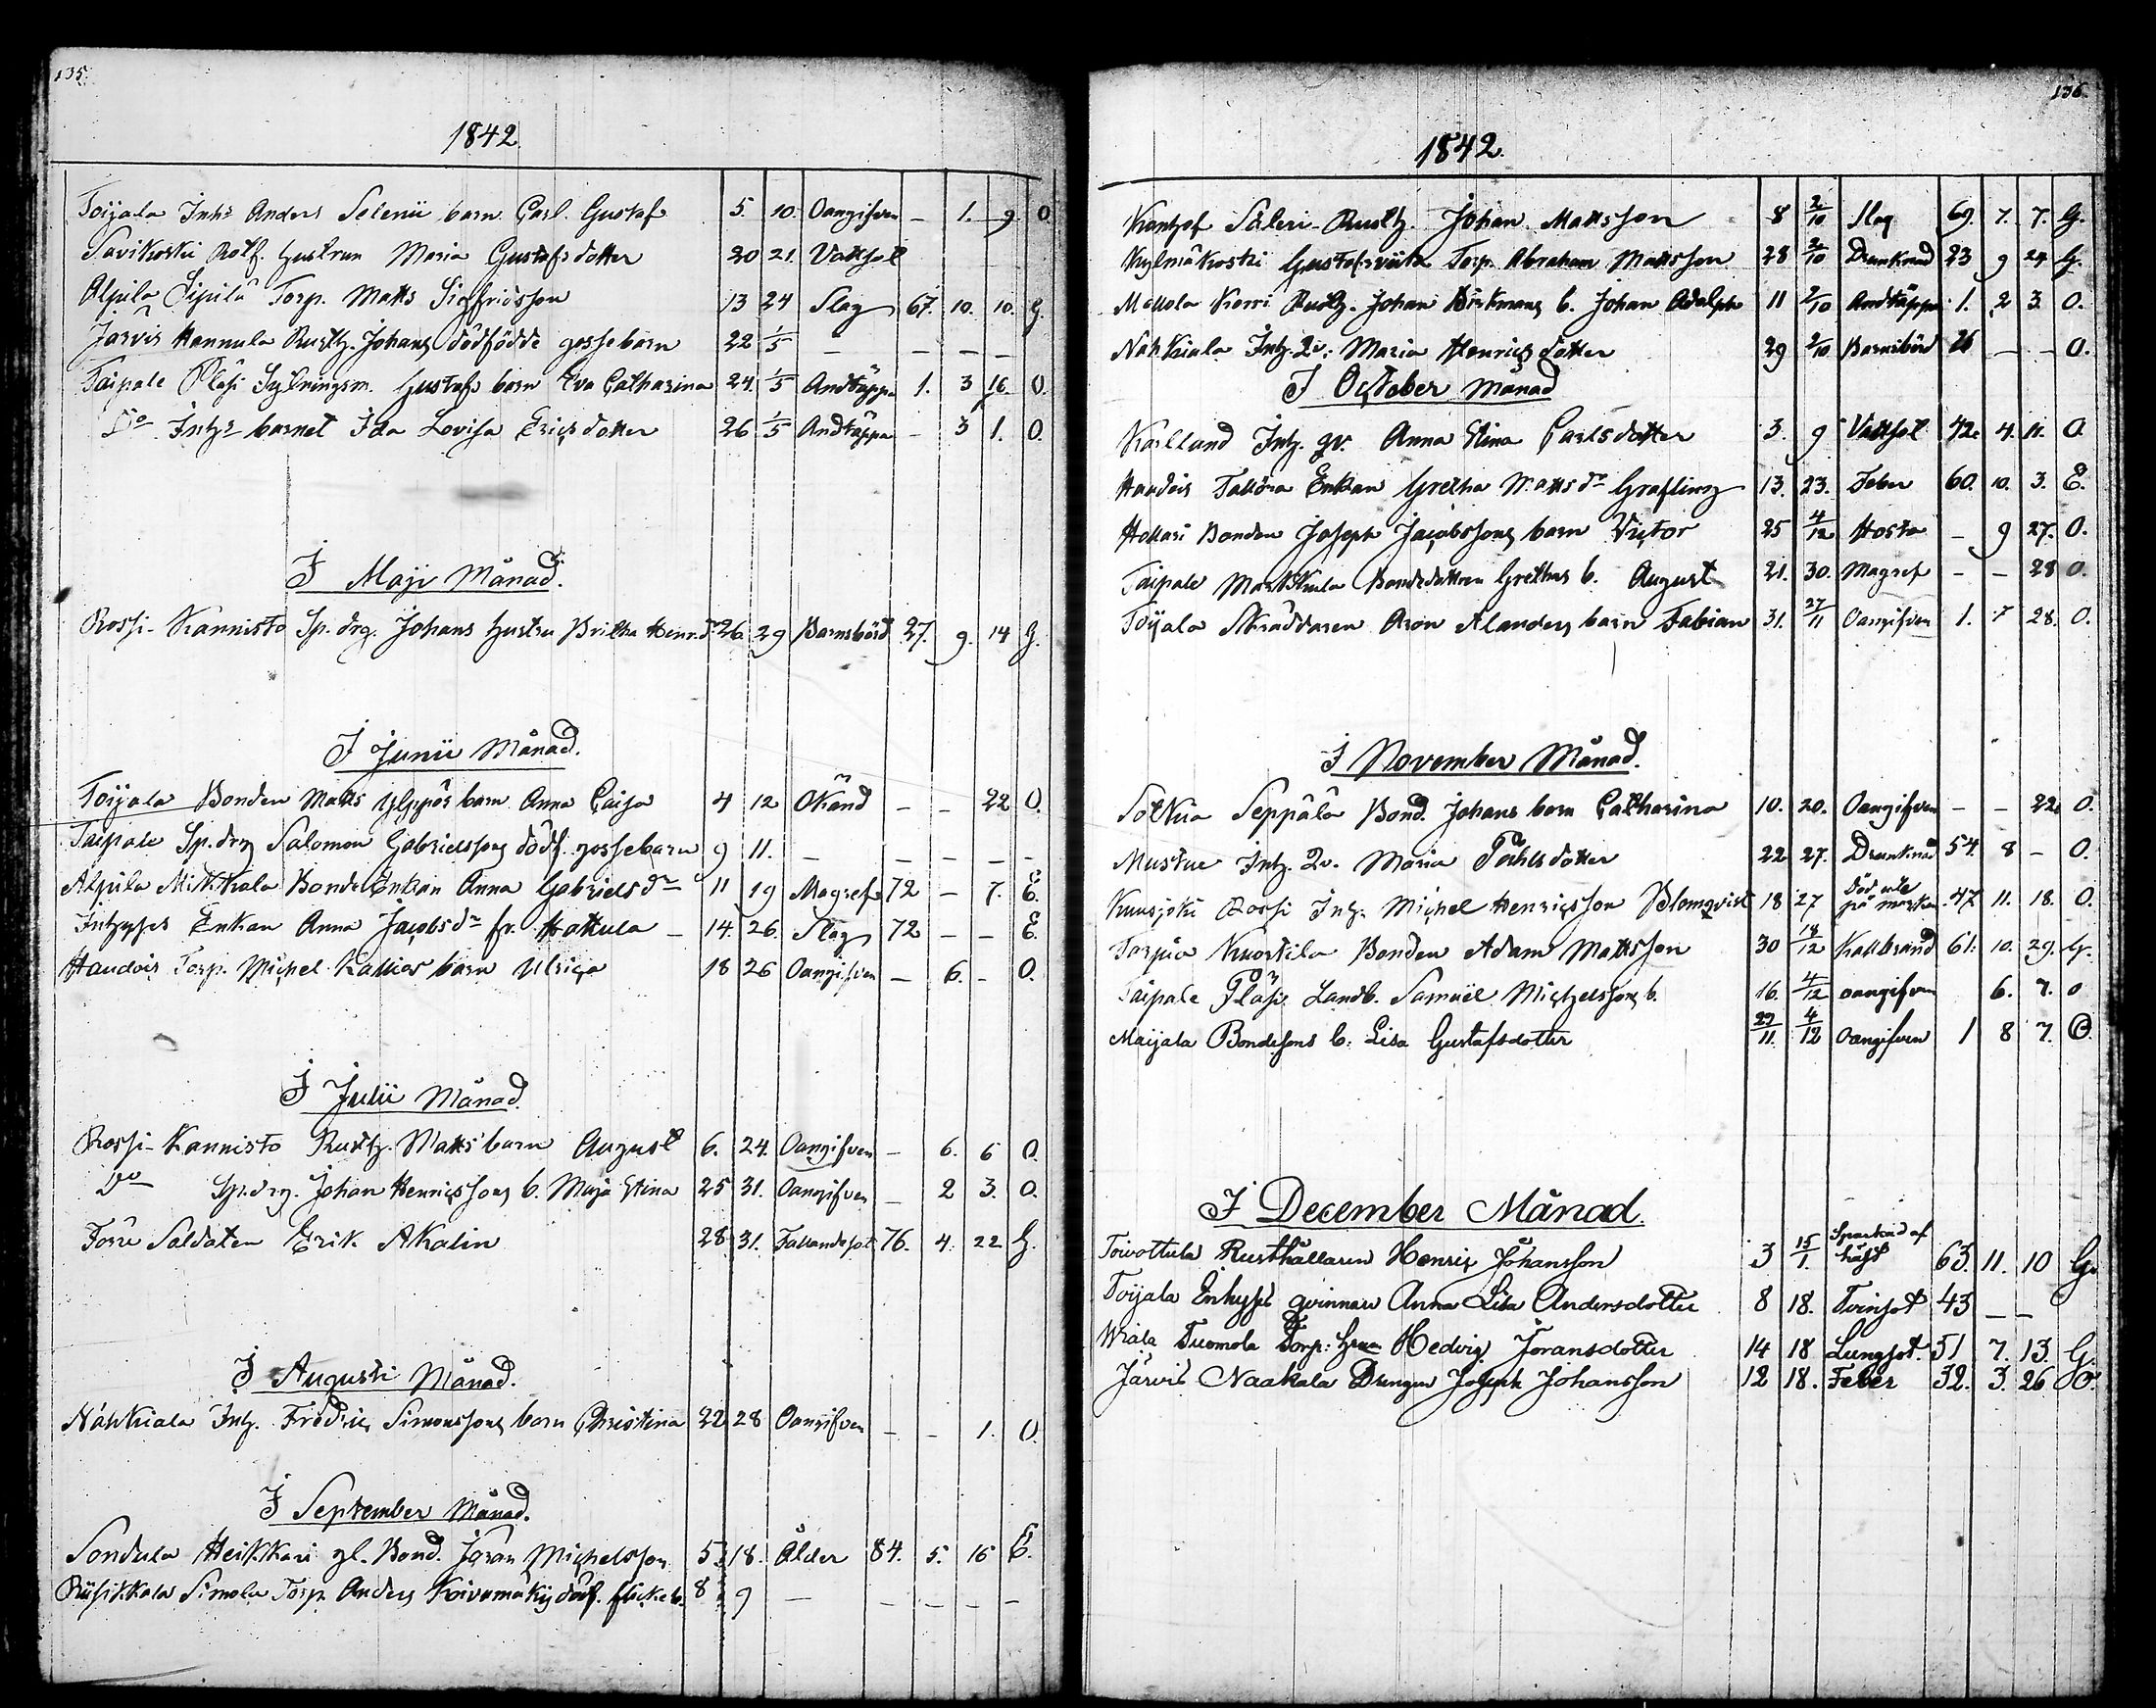 135.
1842.
Toijala Inhs Anders Selenii barn Carl Gustaf 5. 10. Oangifven – 1. 9 O.
Savikoski Rotf. hustrun Maria Gustafsdotter 20 21. Vattsot
Alpila Sipilä Torp. Matts Sigfridsson 13 24 Slag 67. 10. 10. G.
Järvis Hannula Rusth. Johans dödfödde gossebarn 22 1/5 – – – –
Taipale Pläsi Gustafs barn Eva Catharina 24. 1/5 Andtäppa 1. 3 16. O.
Do Inhs barnet Ida Lovisa Ericsdotter 26 1/5 Andtäppa – 3 1. O.
I Maji Månad.
Rossi-Kannisto Sp. drg. Johans hustru Britha Henr.dr 26 29 Barnsbörd 27. 9. 14 G.
I Junii Månad.
Toijala Bonden Matts Yppös barn Anna Caisa 4 12 Okänd – – 22 O.
Taipale Sp. drg Salomon Gabrielssons dödf. gossebarn 9 11. – – – – –
Alpila Mikkala Bonde Enkan Anna Gabrielsdr 11 19 Magref 72 – 7. E.
Inhyses Enkan Anna Jacobsdr fr. Hattula – 14. 26. Slag 72 – – E.
Haudois Torp. Michel Kallios barn Ulrica 18 26 Oangifven – 6. – O.
I Julii Månad.
Rossi-Kannisto Rusth. Matts barn August 6. 24. Oangifven – 6. 6 O.
Do Sp. drg. Johan Henricssons b. Maja Stina 25 31. Oangifven – 2 3. O.
Torri Soldaten Erik Akalin 28 31. Fallandesot 76. 4. 22 G.
I Augusti Månad.
Nähkiala Inh. Fredric Simonssons barn Christina 22 28 Oangifven – – 1. O.
I September Månad.
Sondula Heikkari gl. Bond. Jöran Michelsson 5 18. Ålder 84. 5. 16 E.
Riisikkala Simola Torp. Anders Koivumäkis dödf. flickeb. 8 9 – – – – –
136.
1842.
Kantzof Säteri-Rusth. Johan Mattsson 8 2/10 Slag 69. 7. 7. G.
Kylmäkoski Torp. Abraham Mattsson 28 2/10 Drunknad 23 9 24 G.
Mellola Korri Rusth. Johan Björkmans b. Johan Adolph 11 2/10 Andtäppa 1. 2 3. O.
Nähkiala Inh. Qv. Maria Henricsdotter 29 2/10 Barnsbörd 26 – – O.
I October Månad
Karlland Inh. qv. Anna Stina Carlsdotter 3. 9 Vattsot 42. 4. 11. O.
Haudois Tallöra Enkan Gretha Mattsdr Grafling 13. 23. Feber 60. 10. 3. E.
Hollari Bonden Joseph Jacobssons barn Victor 25 4/12 Hosta – 9 27. O.
Taipale Markkula Bondedottren Grethas b. August 21. 30. Magref – – 28 O.
Toijala Skräddaren Aron Alanders barn Fabian 31. 27/11 Oangifven 1. 7 28. O.
I November Månad.
Sotkia Seppälä Bond. Johans barn Catharina 10. 20. Oangifven – – 22. O.
Mustue Inh. Qv. Maria Påhlsdotter 22 27. Drunknad 54. 8 – O.
Kuusjoki Rossi Inh. Michel Henricsson Blomqvist 18 27 Död ute på marken 47 11. 18. O.
Tarpia Knortila Bonden Adam Mattsson 30 18/12 Kallbrand 61. 10. 29. G.
Taipale Pläsi Landb. Samuel Michelssons b. 16. 4/12 oangifven 6. 7. o
Maijala Bondesons b. Lisa Gustafsdotter 29/11. 4/12 Oangifven 1 8 7. O.
I December Månad.
Toivottula Rusthållaren Henric Johansson 3 15/1. Sparkad af häst 63. 11. 10 G.
Toijala Enhyses qvinnan Anna Lisa Andersdotter 8 18. Tvinsot 43 – –
Wiala Tuomola Torp: hrun Hedvig Jöransdotter 14 18 Lungsot. 51 7. 13. G.
Järvis Naakala Drengen Joseph Johansson 12 18. Feber 32. 3. 26 O.